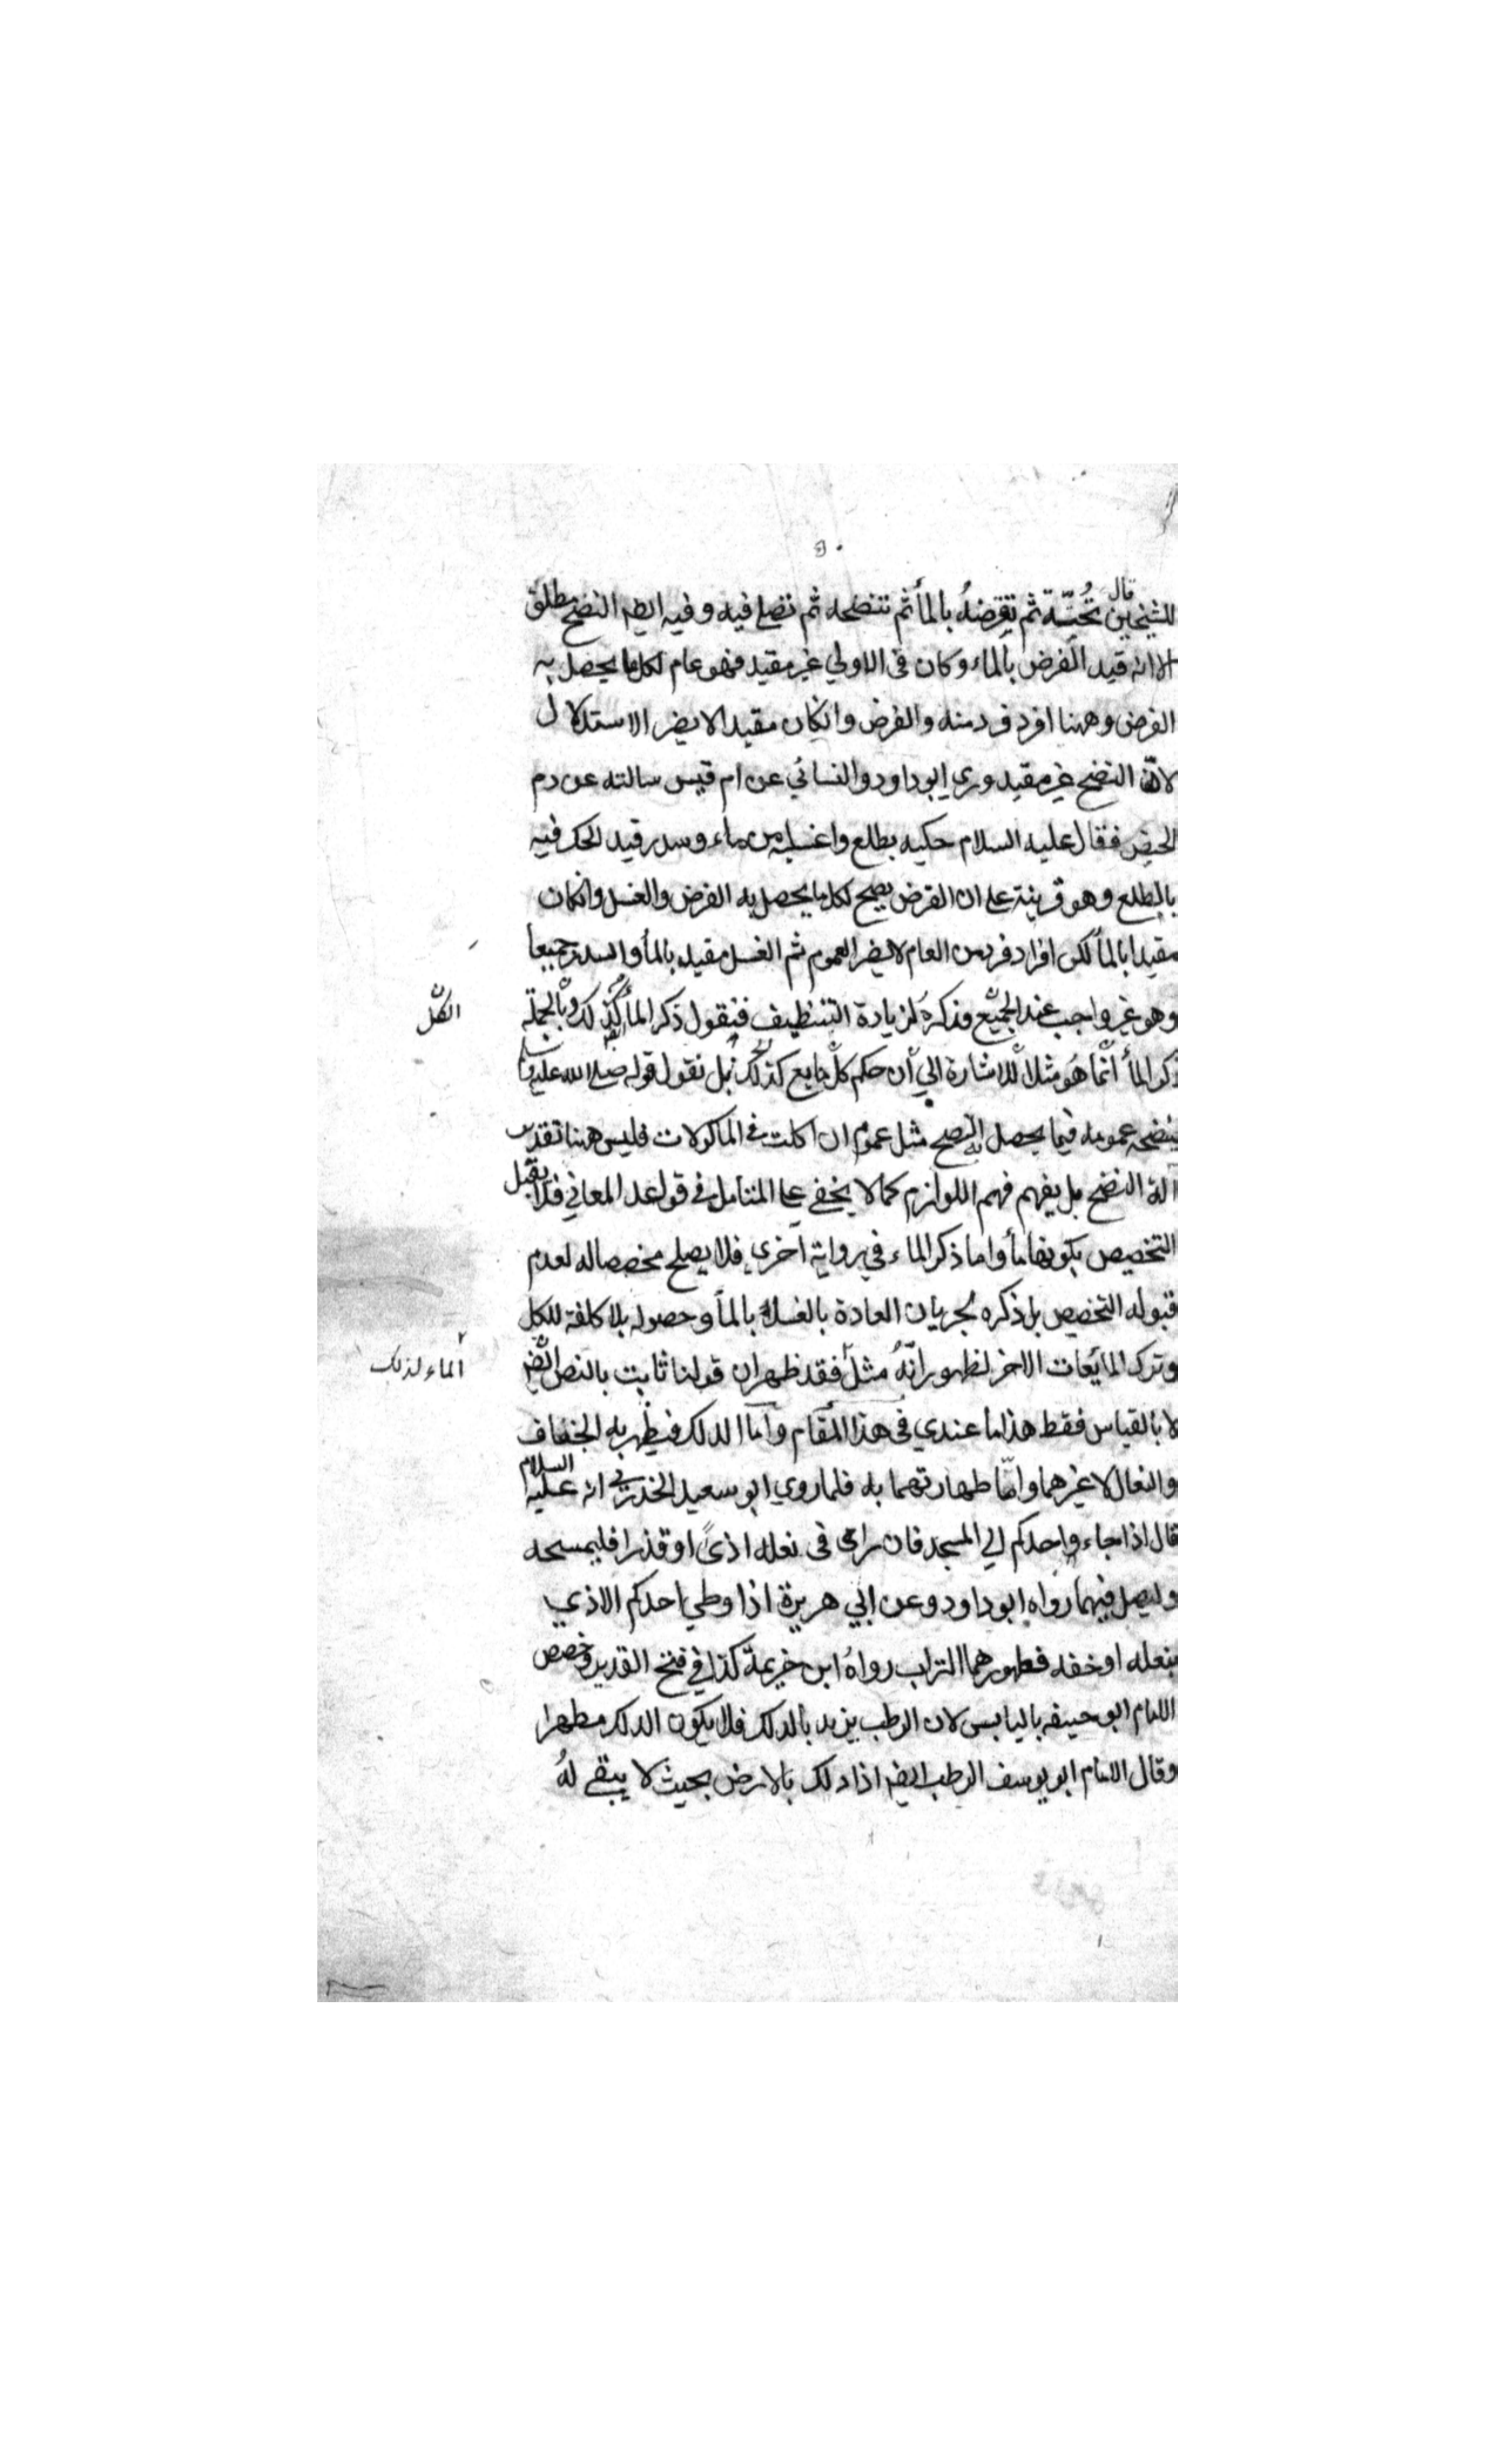 ٥٠
للشيخين قال تحته ثم تقرضه بالمأ ثم تنضحه ثم تصلي فيه وفيه ايضا النضح مطلق
الا انه قيد القرض بالماء وكان في الاولي غير مقيد فهو عام لكل ما يحصل به
القرض وههنا افرد فرد منه والقرض وانكان مقيدا لا يضر الاستدلال
لان النضح غير مقيد وروي ابو داود والنسائي عن ام قيس سالته عن دم
الحيض فقال عليه السلام حكيه بطلع واغسليه من ماء وسدر قيد الحك فيه
بالطلع وهو قرينة علي ان القرض يصح لكل ما يحصل به القرض والغسل وانكان
مقيدا بالمأ لكن افراد فرد من العام لا يضر العموم ثم الغسل مقيد بالمأ والسدر جميعا
وهو غير واجب عند الجميع وذكره لزيادة التنظيف فنقول ذكر المأ كذلك وبالجملة
الكل
ذكر المأ انما هو مثلا للاشارة الي ان حكم كل مايع كذلك بل نقول قوله صلي الله عليه وسلم
ينضحه عمومه فيما يحصل به النضح مثل عموم ان اكلت في الماكولات فليس ههنا تقدير
الة النضح بل يفهم فهم اللوازم كما لا يخفي علي المتامل في قواعد المعاني فلا يقبل
التخصيص بكونها مأ واما ذكر الماء في رواية اخري فلا يصلح مخصصا له لعدم
قبوله التخصيص بل ذكره لجريان العادة بالغسل بالمأ وحصوله بلا كلفة للكل
وترك المايعات الاخر لظهور انه مثل فقد ظهر ان قولنا ثابت بالنص ايضا
الماء لذلك
لا بالقياس فقط هذا ما عندي في هذا المقام واما الدلك فيطهر به الخفاف
والنعال لا غيرهما واما طهارتهما به فلما روي ابو سعيد الخدري انه عليه السلام
قال اذا جاء واحدكم الي المسجد فان راي في نعله اذيً او قذرا فليمسحه
وليصل فيهما رواه ابو داود وعن ابي هريرة اذا وطي احدكم الاذي
بنعله او خفه فطهورهما التراب رواه ابن خزيمة كذا في فتح القدير وخصص
الامام ابو حنيفه باليابس لان الرطب يزيد بالدلك فلا يكون الدلك مطهرا
وقال الامام ابو يوسف الرطب ايضا اذا دلك بالارض بحيث لا يبقي له